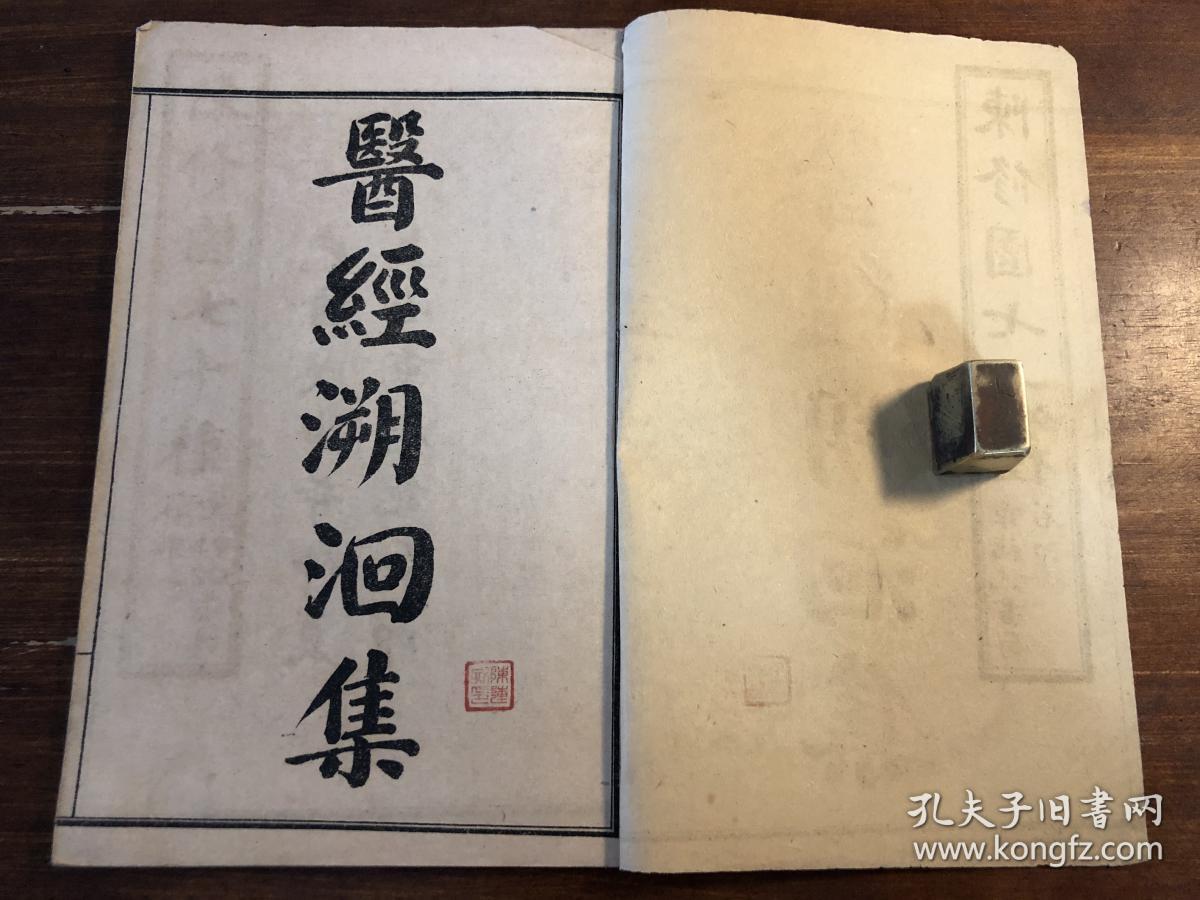 醫經溯洄集
陳修園七
孔夫子旧书网
www.kongfz.com